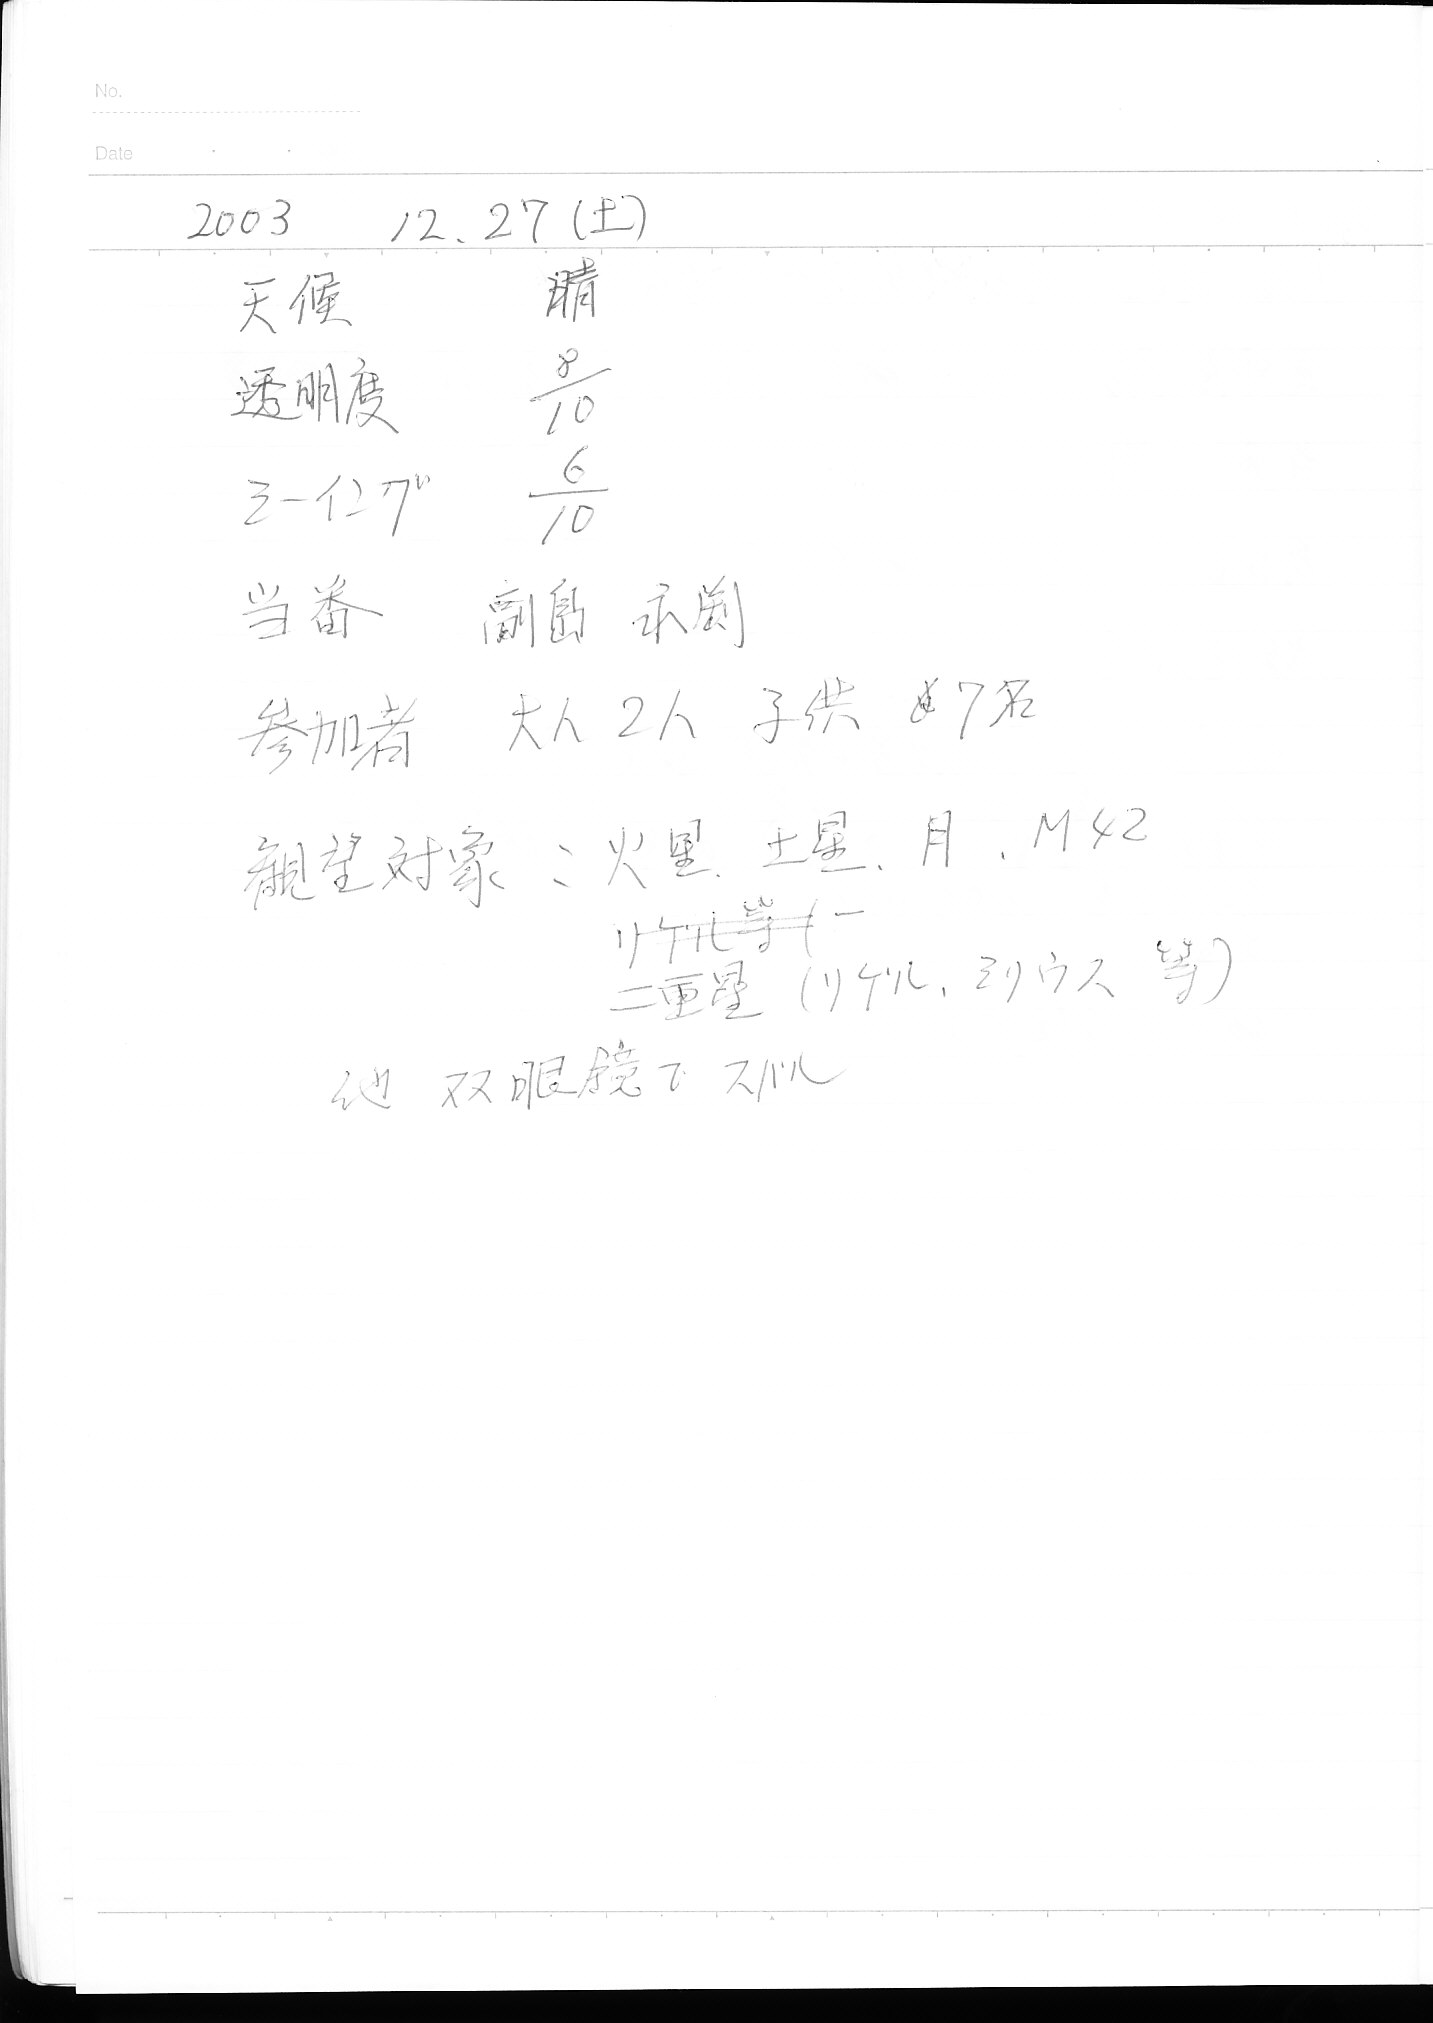 No.
Date
2003 12.27(土)
天候 晴
透明度 8/10
シーイング 6/10
当番 副島 永渕
参加者 大人2人 子供 7名
観望対象:火星、土星、月、M42
リゲル等(一
二重星(リゲル、シリウス等)
他 双眼鏡で スバル